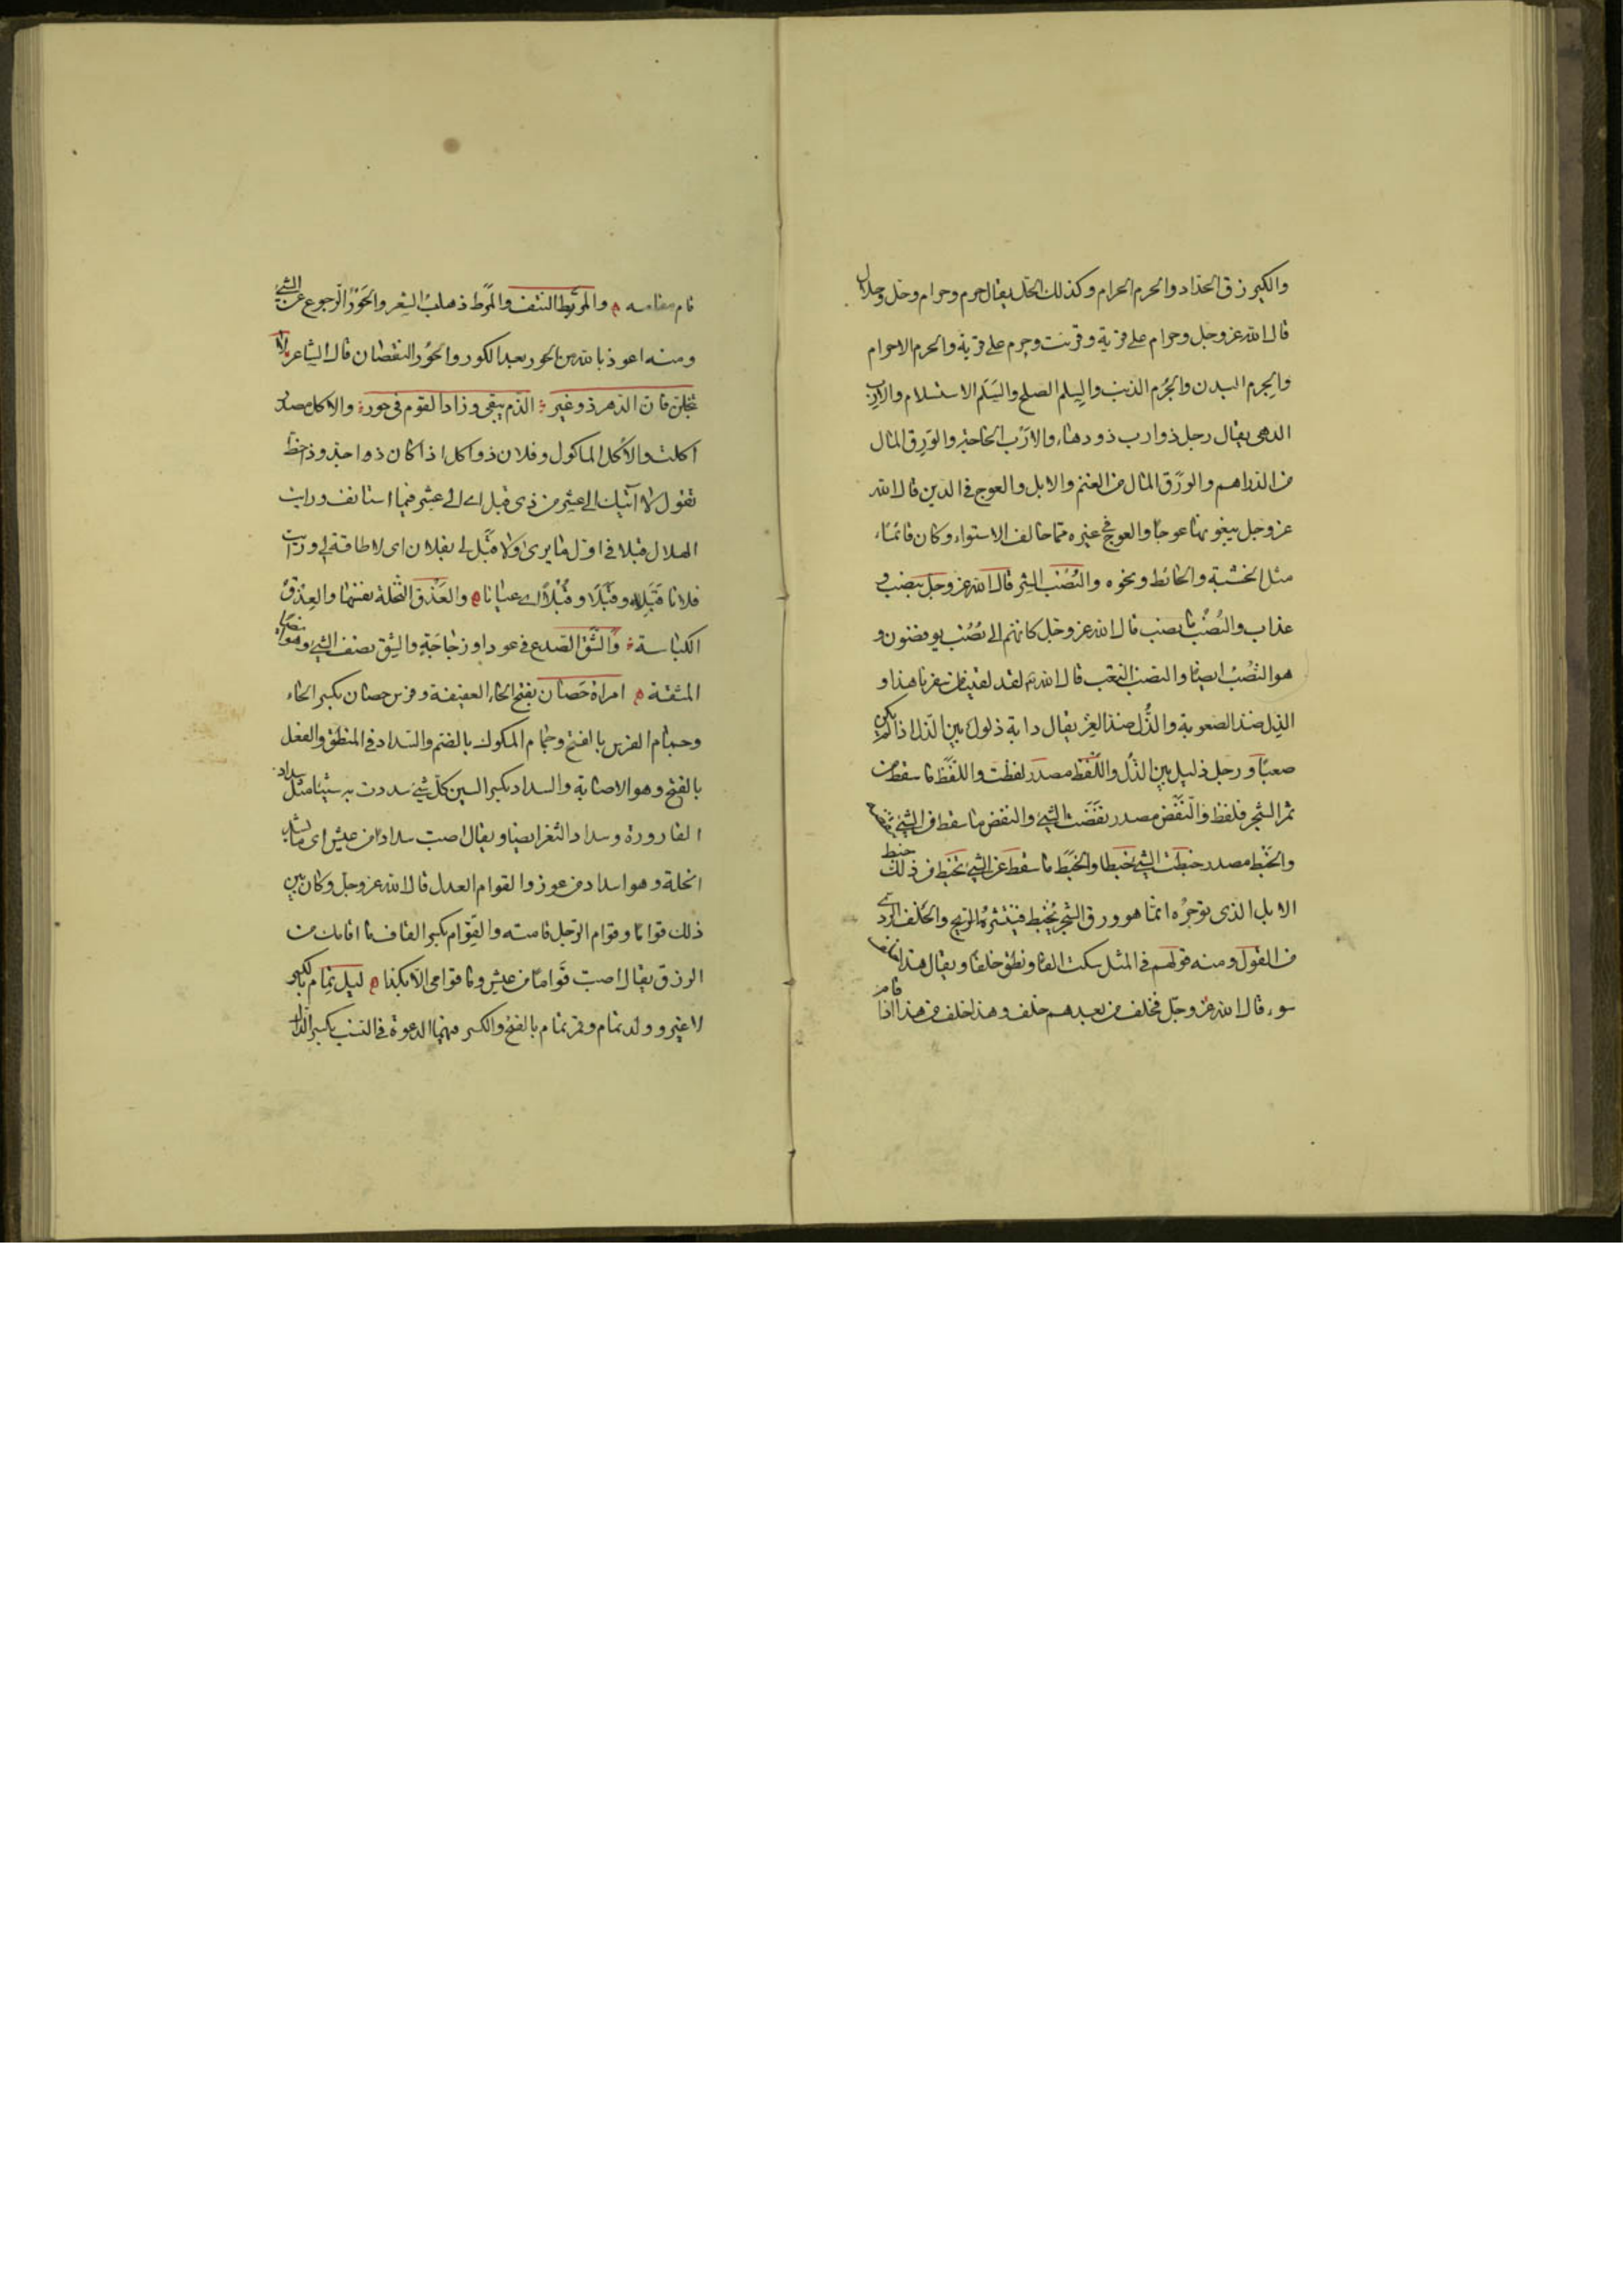 والكير زق الحداد والحرم الحرام وكذلك الحل يقال حرم وحرام وحل وحلال
قال الله عز وجل وحرام على قرية وقرئت وحرم على قرية والحرم الاحرام
والجرم البدن والجُرم الذنب والسِلم الصلح والسَلَم الاستسلام والارب
الدهى يقال رجل ذو ارب ذو دهاء والارَب الحاجة والوَرِق المال
من الدراهم والورَق المال من الغنم والابل والعوج فى الدين قال الله
عز وجل يبغونها عوجًا والعوج فى غيره مما خالف الاستواء وكان قائمًا
مثل الخشبة والحائط ونحوه والنُصْب الشر قال الله عز وجل بنصب و
عذاب والنُصُب ما نصب قال الله عز وجل كانهم الى نُصُب يوفضون و
هو النَصْب ايضا والنصَب التعب قال الله تع لقد لقينا من سفرنا هذا و
الذِل ضد الصعوبة والذُل ضد العز يقال دابة ذلول بين الذل اذا لم يكن
صعبًا و رجل ذليل بين الذُل واللَفْظ مصدر لفظت واللَفَظ ما سقط من
ثمر الشجر فلفظ والنَفْض مصدر نفَضت الشئ والنفض ما سقط من الشئ
والخَبْط مصدر خبطت الشئ خبطا والخَبَط ما سقط عن الشئ تخبط من ذلك خبط
الابل الذى توجرُه انما هو ورق الشجر يُخبط فينتثر والخَلْف الردى
من القول ومنه قولهم فى المثل سكت الفا ونطق خلفا ويقال هذا
سوء قال الله عز وجل فخلف من بعدهم خلف وهذا خلف من هذا اذا قام
قام مقامه والمرْط النتف والمرَط ذهاب الشعر والحَوْر الرجوع عن الشئ
ومنه اعوذ بالله من الحور بعد الكور والحُور النقصان قال الشاعر لا
تبخلن فان الدهر ذو غير الذم يبقى وزاد القوم فى حور والاكل مصدر
اكلت والاُكل الماكول وفلان ذو اكل اذا كان ذا جد وذا حظ
تقول لا آتيك الى عشر من ذى قبل اى الى عشر فيما استانف ورايت
الهلال قبلا فى اول ما يرى ولا قبَل لى بفلان اى لا طاقة لى ورايت
فلانا قَبَلا وقِبَلًا وقُبُلًا اى عيانا والعَذْق النخلة نفسها والعِذْق
الكباسة والشَق الصدع فى عود او زجاجة والشِق نصف الشئ وهو ايضا
المشقة امراة حَصان بفتح الحاء العفيفة وفرس حصان بكسر الحاء
وجمام الفرس بالفتح وجمام المكوك بالضم والسداد فى المنطق والفعل
بالفتح وهو الاصابة والسداد بكسر السين كل شئ سددت به شيئا مثل سداد
القارورة وسداد الثغر ايضا ويقال اصبت سدادا من عيش اى ما يسد
الخلة وهو سداد من عوز والقوام العدل قال الله عز وجل وكان بين
ذلك قواما وقوام الرجل قامته والقِوام بكسر القاف ما اقامك من
الرزق يقال اصبت قَوامًا من عيش وما قوامى الا بكذا ليل تِمام بالكسر
لا غير وولد تمام وقمر تمام بالفتح والكسر فيهما الدعوة فى النسب بكسر الدال